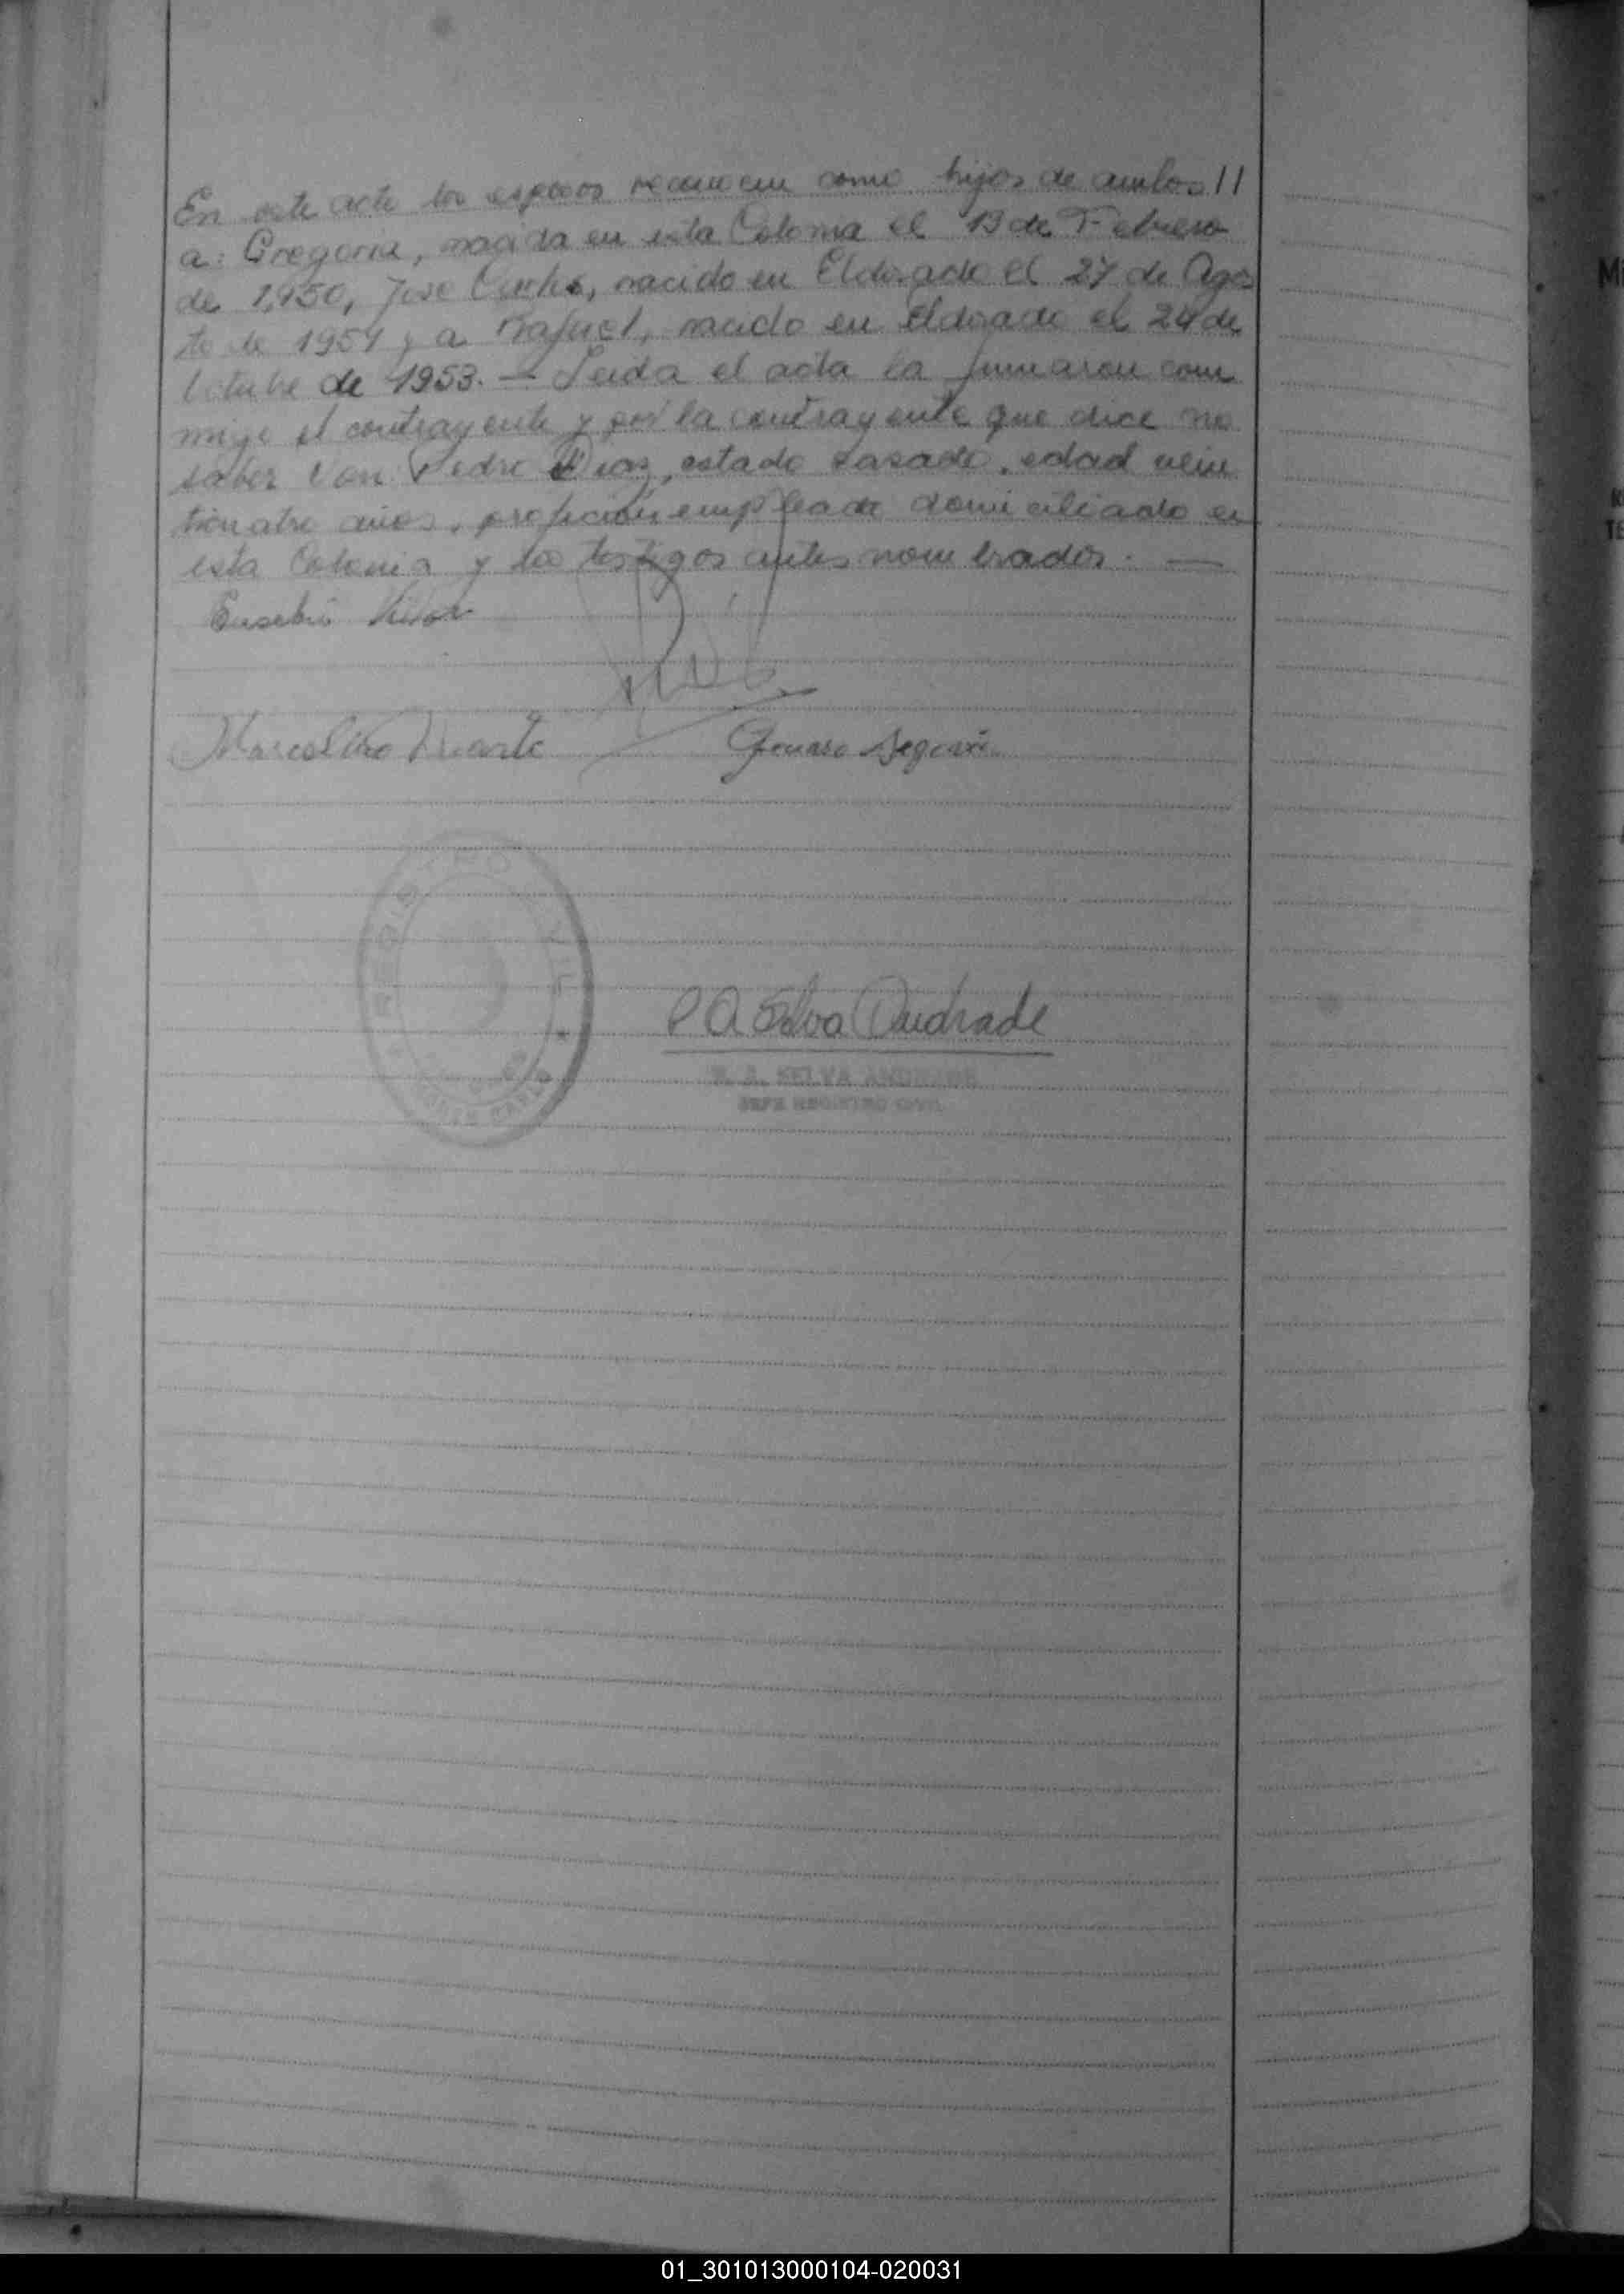 En este acto los esposos reconocen como hijos de ambos //
a: Gregoria, nacida en esta Colonia el 13 de Febrero
de 1950, Jose Carlos, nacido en Eldorado el 27 de Agos
to de 1951 y a Rafael, nacido en Eldorado el 24 de
Octubre de 1953. — Leida el acta la firmaron con
migo el contrayente y por la contrayente que dice no
saber Don Pedro Diaz, estado casado, edad vein
ticuatro años, profecion empleado domiciliado en
esta Colonia y los testigos antes nombrados. —
Eusebio
Marcelino Duarte Genaro Segovia
REGISTRO CIVIL
P A Selva Andrade
P. A. SELVA ANDRADE
JEFE REGISTRO CIVIL
01_301013000104-020031